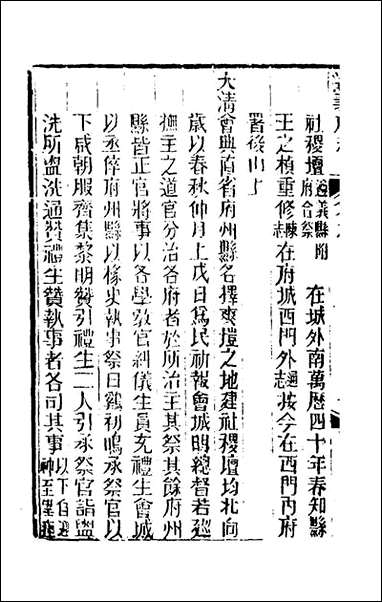 社稷壇遵義縣附府合祭 在城外南萬歷四十年春知縣
王之楨重修陳志在府城西門外通志按今在西門內府
署後山上
大清會典直省府州縣各擇爽塏之地建社稷壇均北向
歲以春秋仲月上戊日爲民祈報會城明總督若巡
撫主之道官分治各府者於所治主其祭其餘府州
縣皆正官將事以各學教官糾儀生員充禮生會城
以丞倅府州縣以椽史執事祭日雞初鳴承祭官以
下咸朝服齊集黎明贊引禮生二人引承祭官詣盥
洗所盥洗通贊禮生贊執事者各司其事以下自迎神至望瘞